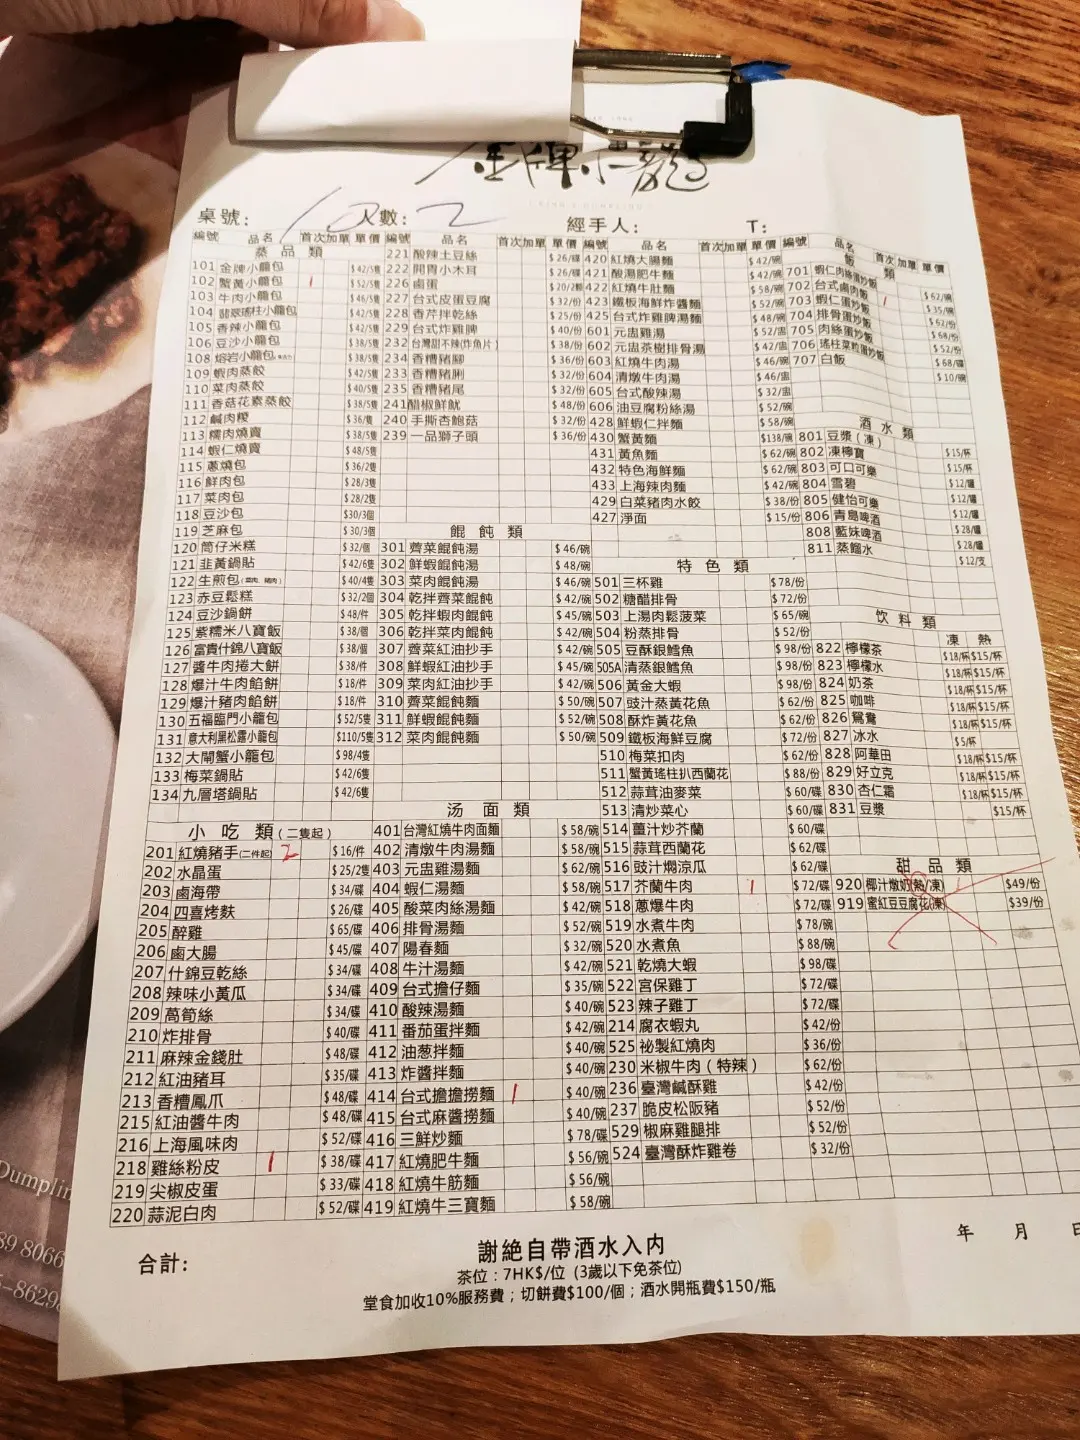 金牌小籠
桌號: 13 人數: 2 經手人: T:
編號 品名 首次 加單 單價 編號 品名 首次 加單 單價 編號 品名 首次 加單 單價 編號 品名 首次 加單 單價
蒸品類
101 金牌小籠包 $42/5隻
102 蟹黃小籠包 1 $52/5隻
103 牛肉小籠包 $46/5隻
104 翡翠瑤柱小籠包 $42/5隻
105 香辣小籠包 $42/5隻
106 豆沙小籠包 $38/5隻
108 熔岩小籠包 $38/5隻
109 蝦肉蒸餃 $42/5隻
110 菜肉蒸餃 $40/5隻
111 香菇花素蒸餃 $38/5隻
112 鹹肉粽 $36/隻
113 糯肉燒賣 $38/5隻
114 蝦仁燒賣 $48/5隻
115 蔥燒包 $36/2隻
116 鮮肉包 $28/3隻
117 菜肉包 $28/2隻
118 豆沙包 $30/3個
119 芝麻包 $30/3個
120 筒仔米糕 $32/個
121 韭黃鍋貼 $42/6隻
122 生煎包(菜肉、豬肉) $40/4隻
123 赤豆鬆糕 $32/2個
124 豆沙鍋餅 $48/件
125 紫糯米八寶飯 $38/個
126 富貴什錦八寶飯 $38/個
127 醬牛肉捲大餅 $38/件
128 爆汁牛肉餡餅 $18/件
129 爆汁豬肉餡餅 $18/件
130 五福臨門小籠包 $52/5隻
131 意大利黑松露小籠包 $110/5隻
132 大閘蟹小籠包 $98/4隻
133 梅菜鍋貼 $42/6隻
134 九層塔鍋貼 $42/6隻
小吃類(二隻起)
201 紅燒豬手(二件起) 2 $16/件
202 水晶蛋 $25/2隻
203 鹵海帶 $34/碟
204 四喜烤麩 $26/碟
205 醉雞 $65/碟
206 鹵大腸 $45/碟
207 什錦豆乾絲 $34/碟
208 辣味小黃瓜 $34/碟
209 萵筍絲 $34/碟
210 炸排骨 $40/碟
211 麻辣金錢肚 $48/碟
212 紅油豬耳 $35/碟
213 香糟鳳爪 $48/碟
215 紅油醬牛肉 $48/碟
216 上海風味肉 $52/碟
218 雞絲粉皮 1 $38/碟
219 尖椒皮蛋 $33/碟
220 蒜泥白肉 $52/碟
221 酸辣土豆絲 $26/碟
222 開胃小木耳 $26/碟
226 鹵蛋 $20/2顆
227 台式皮蛋豆腐 $32/份
228 香芹拌乾絲 $25/份
229 台式炸雞脾 $40/份
232 台灣甜不辣(炸魚片) $38/份
234 香糟豬腳 $36/份
233 香糟豬脷 $32/份
235 香糟豬尾 $32/份
241 醋椒鮮魷 $48/份
240 手撕杏鮑菇 $32/份
239 一品獅子頭 $36/份
餛飩類
301 薺菜餛飩湯 $46/碗
302 鮮蝦餛飩湯 $48/碗
303 菜肉餛飩湯 $46/碗
304 乾拌薺菜餛飩 $42/碗
305 乾拌蝦肉餛飩 $45/碗
306 乾拌菜肉餛飩 $42/碗
307 薺菜紅油抄手 $42/碗
308 鮮蝦紅油抄手 $45/碗
309 菜肉紅油抄手 $42/碗
310 薺菜餛飩麵 $50/碗
311 鮮蝦餛飩麵 $52/碗
312 菜肉餛飩麵 $50/碗
汤面類
401 台灣紅燒牛肉面麵 $58/碗
402 清燉牛肉湯麵 $58/碗
403 元盅雞湯麵 $62/碗
404 蝦仁湯麵 $58/碗
405 酸菜肉絲湯麵 $42/碗
406 排骨湯麵 $52/碗
407 陽春麵 $32/碗
408 牛汁湯麵 $42/碗
409 台式擔仔麵 $35/碗
410 酸辣湯麵 $40/碗
411 番茄蛋拌麵 $42/碗
412 油葱拌麵 $40/碗
413 炸醬拌麵 $40/碗
414 台式擔擔撈麵 1 $40/碗
415 台式麻醬撈麵 $40/碗
416 三鮮炒麵 $78/碟
417 紅燒肥牛麵 $56/碗
418 紅燒牛筋麵 $56/碗
419 紅燒牛三寶麵 $58/碗
420 紅燒大腸麵 $42/碗
421 酸湯肥牛麵 $42/碗
422 紅燒牛肚麵 $58/碗
423 鐵板海鮮炸醬麵 $52/碗
425 台式炸雞脾湯麵 $48/碗
601 元盅雞湯 $52/盅
602 元盅茶樹排骨湯 $42/盅
603 紅燒牛肉湯 $46/碗
604 清燉牛肉湯 $46/盅
605 台式酸辣湯 $32/盅
606 油豆腐粉絲湯 $52/碗
428 鮮蝦仁拌麵 $58/碗
430 蟹黃麵 $138/碗
431 黃魚麵 $62/碗
432 特色海鮮麵 $62/碗
433 上海辣肉麵 $42/碗
429 白菜豬肉水餃 $38/份
427 淨面 $15/份
特色類
501 三杯雞 $78/份
502 糖醋排骨 $72/份
503 上湯肉鬆菠菜 $65/碗
504 粉蒸排骨 $52/份
505 豆酥銀鱈魚 $98/份
505A 清蒸銀鱈魚 $98/份
506 黃金大蝦 $98/份
507 豉汁蒸黃花魚 $62/份
508 酥炸黃花魚 $62/份
509 鐵板海鮮豆腐 $72/份
510 梅菜扣肉 $62/份
511 蟹黃瑤柱扒西蘭花 $88/份
512 蒜茸油麥菜 $60/碟
513 清炒菜心 $60/碟
514 薑汁炒芥蘭 $60/碟
515 蒜茸西蘭花 $62/碟
516 豉汁燜涼瓜 $62/碟
517 芥蘭牛肉 1 $72/碟
518 蔥爆牛肉 $72/碟
519 水煮牛肉 $78/碗
520 水煮魚 $88/碗
521 乾燒大蝦 $98/碟
522 宮保雞丁 $72/碟
523 辣子雞丁 $72/碟
214 腐衣蝦丸 $42/份
525 祕製紅燒肉 $36/份
230 米椒牛肉(特辣) $62/份
236 臺灣鹹酥雞 $42/份
237 脆皮松阪豬 $52/份
529 椒麻雞腿排 $52/份
524 臺灣酥炸雞卷 $32/份
飯類
701 蝦仁肉絲蛋炒飯 $62/碗
702 台式鹵肉飯 1 $35/碗
703 蝦仁蛋炒飯 $62/份
704 排骨蛋炒飯 $68/份
705 肉絲蛋炒飯 $52/份
706 瑤柱菜粒蛋炒飯 $68/碟
707 白飯 $10/碗
酒水類
801 豆漿(凍) $15/杯
802 凍檸寶 $15/杯
803 可口可樂 $12/罐
804 雪碧 $12/罐
805 健怡可樂 $12/罐
806 青島啤酒 $28/罐
808 藍妹啤酒 $28/罐
811 蒸餾水 $12/支
飲料類
凍 熱
822 檸檬茶 $18/杯 $15/杯
823 檸檬水 $18/杯 $15/杯
824 奶茶 $18/杯 $15/杯
825 咖啡 $18/杯 $15/杯
826 鴛鴦 $18/杯 $15/杯
827 冰水 $5/杯
828 阿華田 $18/杯 $15/杯
829 好立克 $18/杯 $15/杯
830 杏仁霜 $18/杯 $15/杯
831 豆漿 $15/杯
甜品類
920 椰汁燉奶(熱/凍) $49/份
919 蜜紅豆豆腐花(凍) $39/份
合計:
年 月 日
謝絕自帶酒水入内
茶位：7HK$/位 (3歲以下免茶位)
堂食加收10%服務費；切餅費$100/個；酒水開瓶費$150/瓶